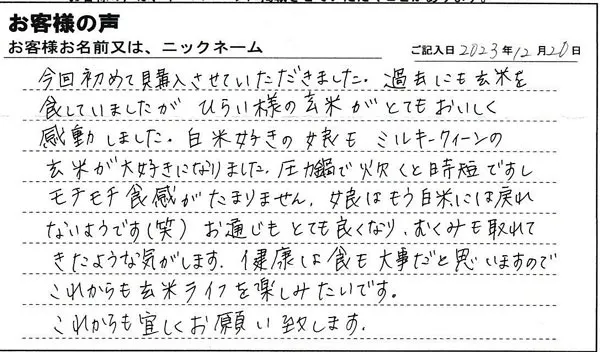 お客様の声
お客様お名前又は、ニックネーム
ご記入日2023年12月20日
今回初めて購入させていただきました。過去にも玄米を
食していましたが ひらい様の玄米がとてもおいしく
感動しました。白米好きの娘も ミルキークィーンの
玄米が大好きになりました。圧力鍋で炊くと時短ですし
モチモチ食感がたまりません。娘はもう白米には戻れ
ないようです(笑) お通じもとても良くなり、むくみも取れて
きたような気がします。健康は食も大事だと思いますので
これからも玄米ライフを楽しみたいです。
これからも宜しくお願い致します。